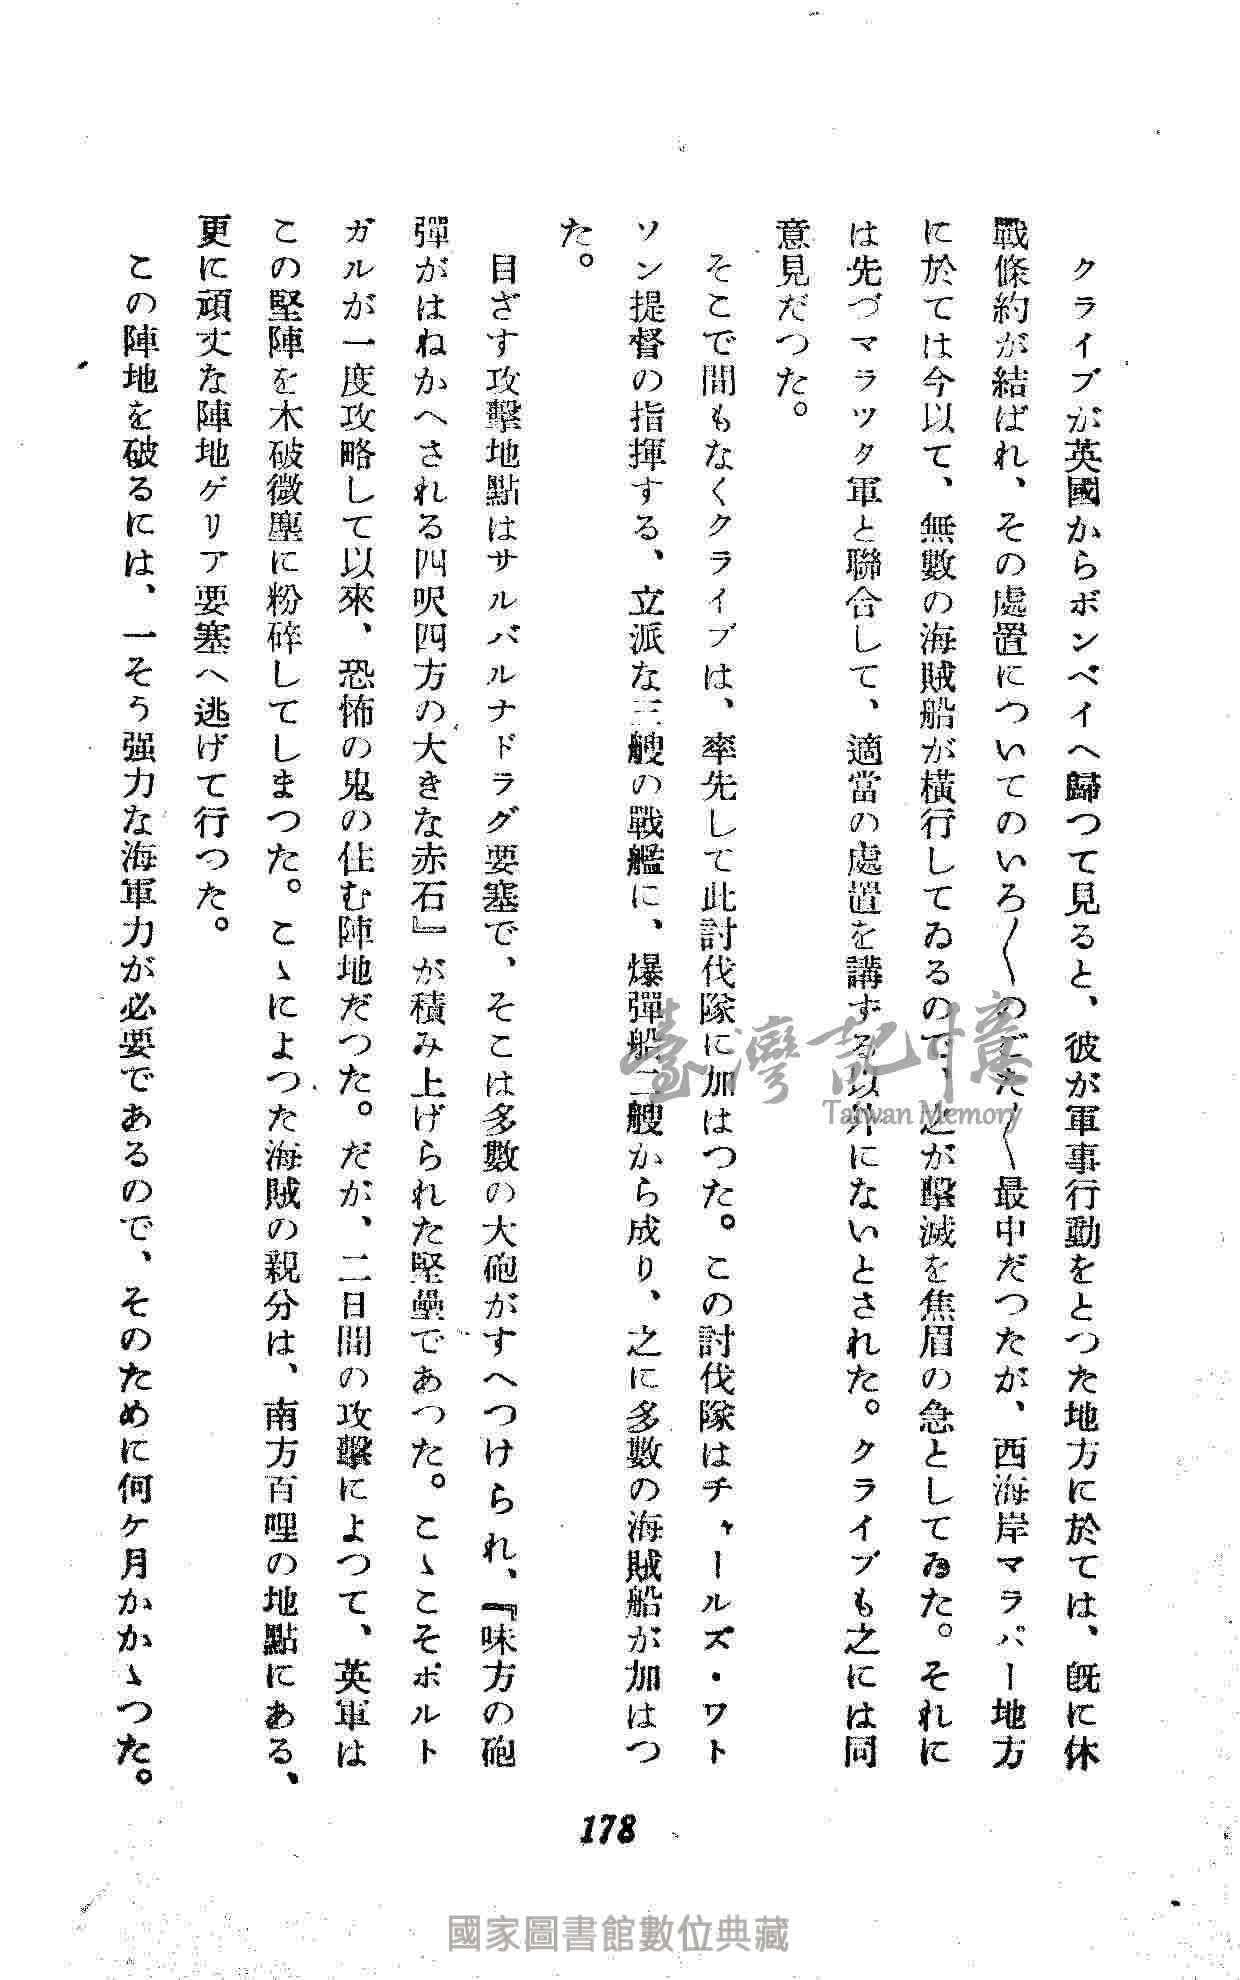 クライブが英國からボンベイへ歸つて見ると、彼が軍事行動をとつた地方に於ては、既に休
戰條約が結ばれ、その處置についてのいろ〱のごた〱最中だつたが、西海岸マラバー地方
に於ては今以て、無數の海賊船が橫行してゐるので、之が擊滅を焦眉の急としてゐた。それに
は先づマラツタ軍と聯合して、適當の處置を講ずる以外にないとされた。クライブも之には同
意見だつた。
そこで間もなくクライブは、率先して此討伐隊に加はつた。この討伐隊はチャールズ・ワト
ソン提督の指揮する、立派な三艘の戰艦に、爆彈船二艘から成り、之に多數の海賊船が加はつ
た。
目ざす攻擊地點はサルバルナドラグ要塞で、そこは多數の大砲がすへつけられ、『味方の砲
彈がはねかへされる四呎四方の大きな赤石』が積み上げられた堅壘であつた。こゝこそポルト
ガルが一度攻略して以來、恐怖の鬼の住む陣地だつた。だが、二日間の攻擊によつて、英軍は
この堅陣を木破微塵に粉碎してしまつた。こゝによつた海賊の親分は、南方百哩の地點にある、
更に頑丈な陣地ゲリア要塞へ逃げて行つた。
この陣地を破るには、一そう强力な海軍力が必要であるので、そのために何ケ月かかゝつた。
178
臺灣記憶
Taiwan Memory
國家圖書館數位典藏